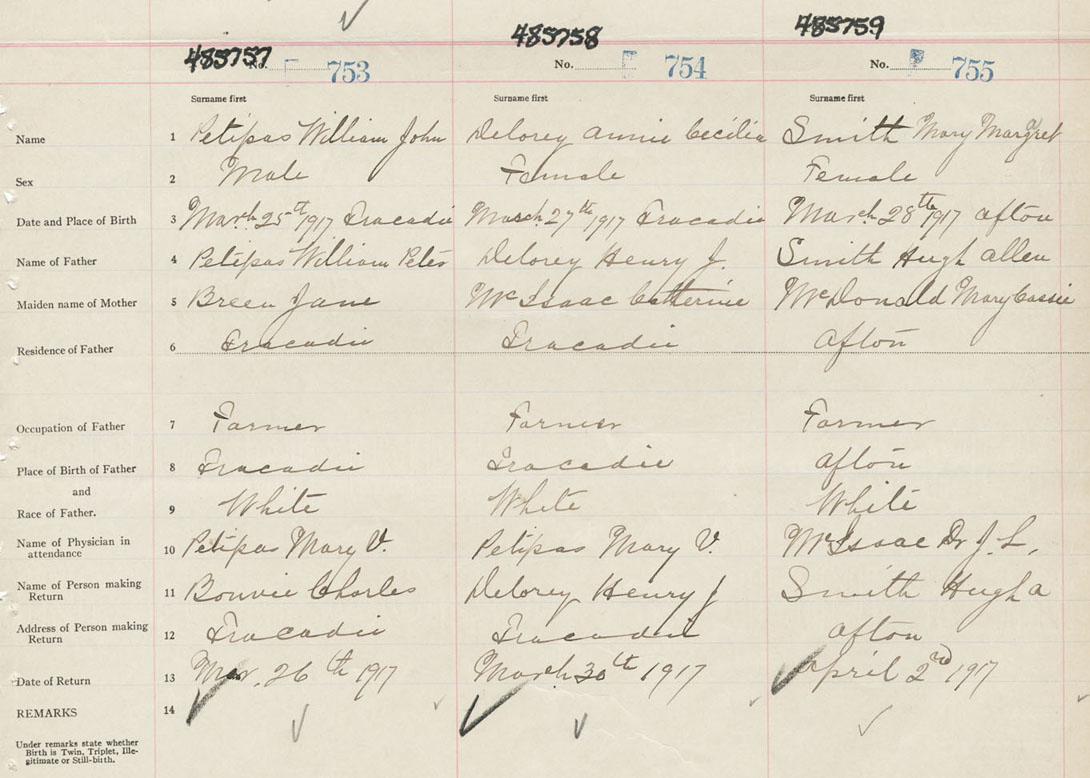 485757 485758 485759
No. 753 No. 754 No. 755
Surname first Surname first Surname first
Name 1 Petipas William John Delorey Annie Cecilia Smith Mary Margret
Sex 2 Male Female Female
Date and Place of Birth 3 March 25th 1917 Tracadie March 27th 1917 Tracadie March 28th 1917 Afton
Name of Father 4 Petipas William Peter Delorey Henry J. Smith Hugh Allen
Maiden name of Mother 5 Breen Jane McIsaac Catherine McDonald Mary Cassie
Residence of Father 6 Tracadie Tracadie Afton
Occupation of Father 7 Farmer Farmer Farmer
Place of Birth of Father 8 Tracadie Tracadie Afton
and
Race of Father. 9 White White White
Name of Physician in
attendance 10 Petipas Mary V. Petipas Mary V. McIsaac Dr J. L.
Name of Person making
Return 11 Bonvie Charles Delorey Henry J Smith Hugh A
Address of Person making
Return 12 Tracadie Tracadie Afton
Date of Return 13 Mar. 26th 1917 March 30th 1917 April 2nd 1917
REMARKS 14
Under remarks state whether
Birth is Twin, Triplet, Ille-
gitimate or Still-birth.